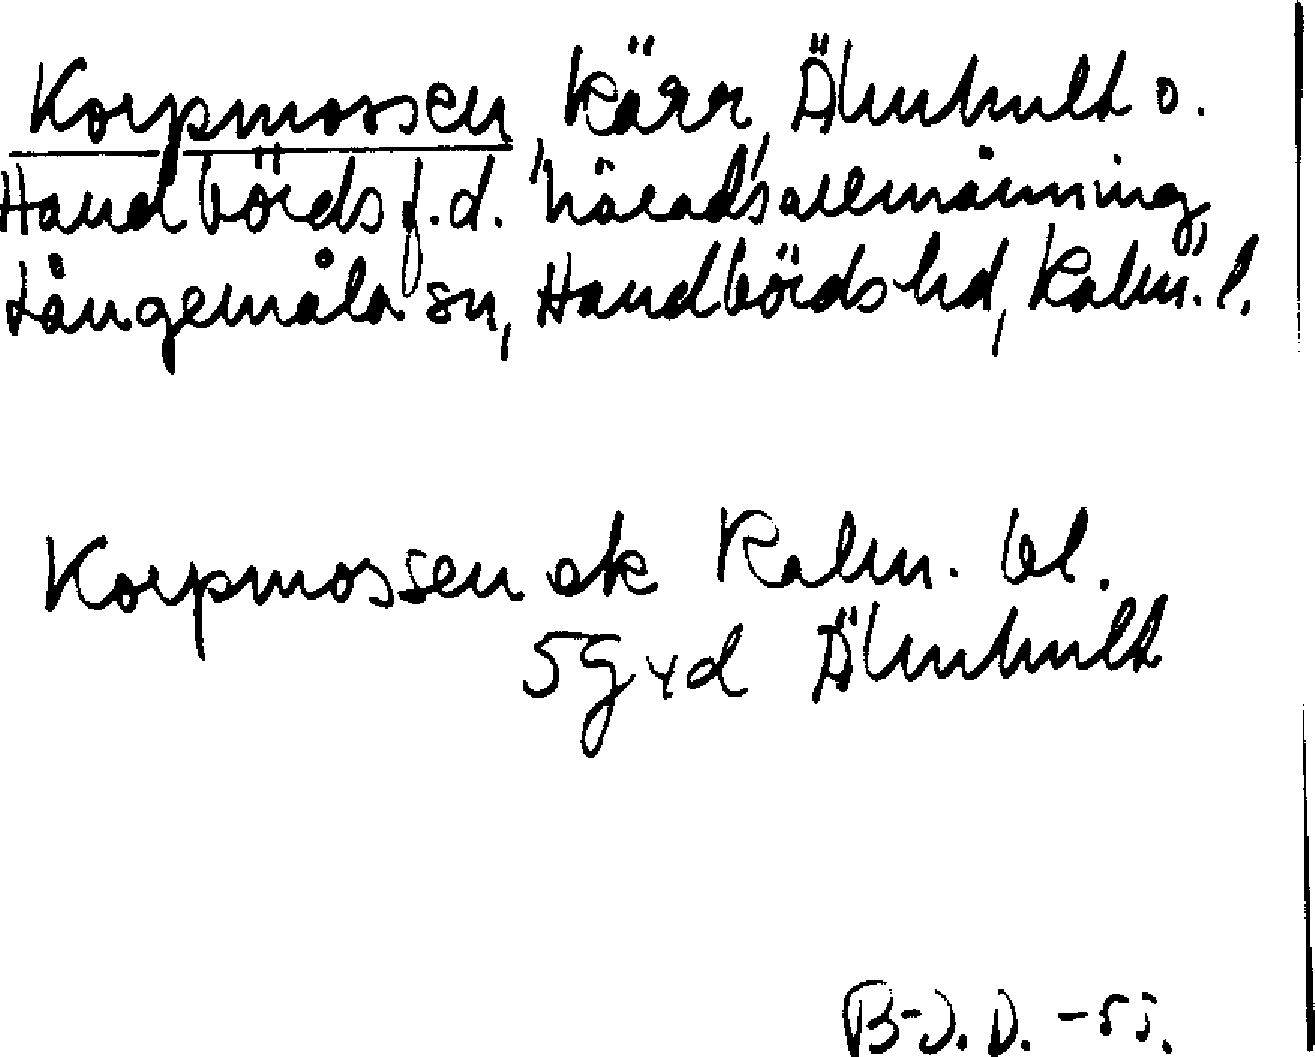 Korpmossen, kärr, Älmhult o.
Handbörds f.d. häradsallmänning,
Långemåla sn, Handbörds hd, Kalm. l.
Korpmossen ek Kalm. bl.
5G yd Älmhult
B-J. D. -55.